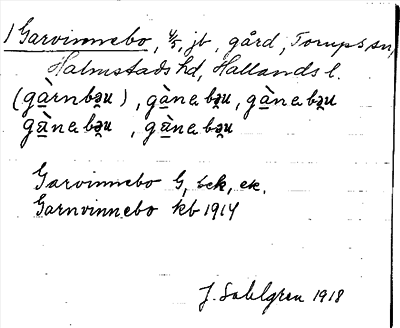 1 Garvinnebo, 4/5, jb, gård, Torups sn,
Halmstads hd, Hallands l.
(gàrnbəu), gànebəu, gànebəu
gànebəu, gànebəu
Garvinnebo G, bek, ek.
Garnvinnebo kb 1914
J. Sahlgren 1918